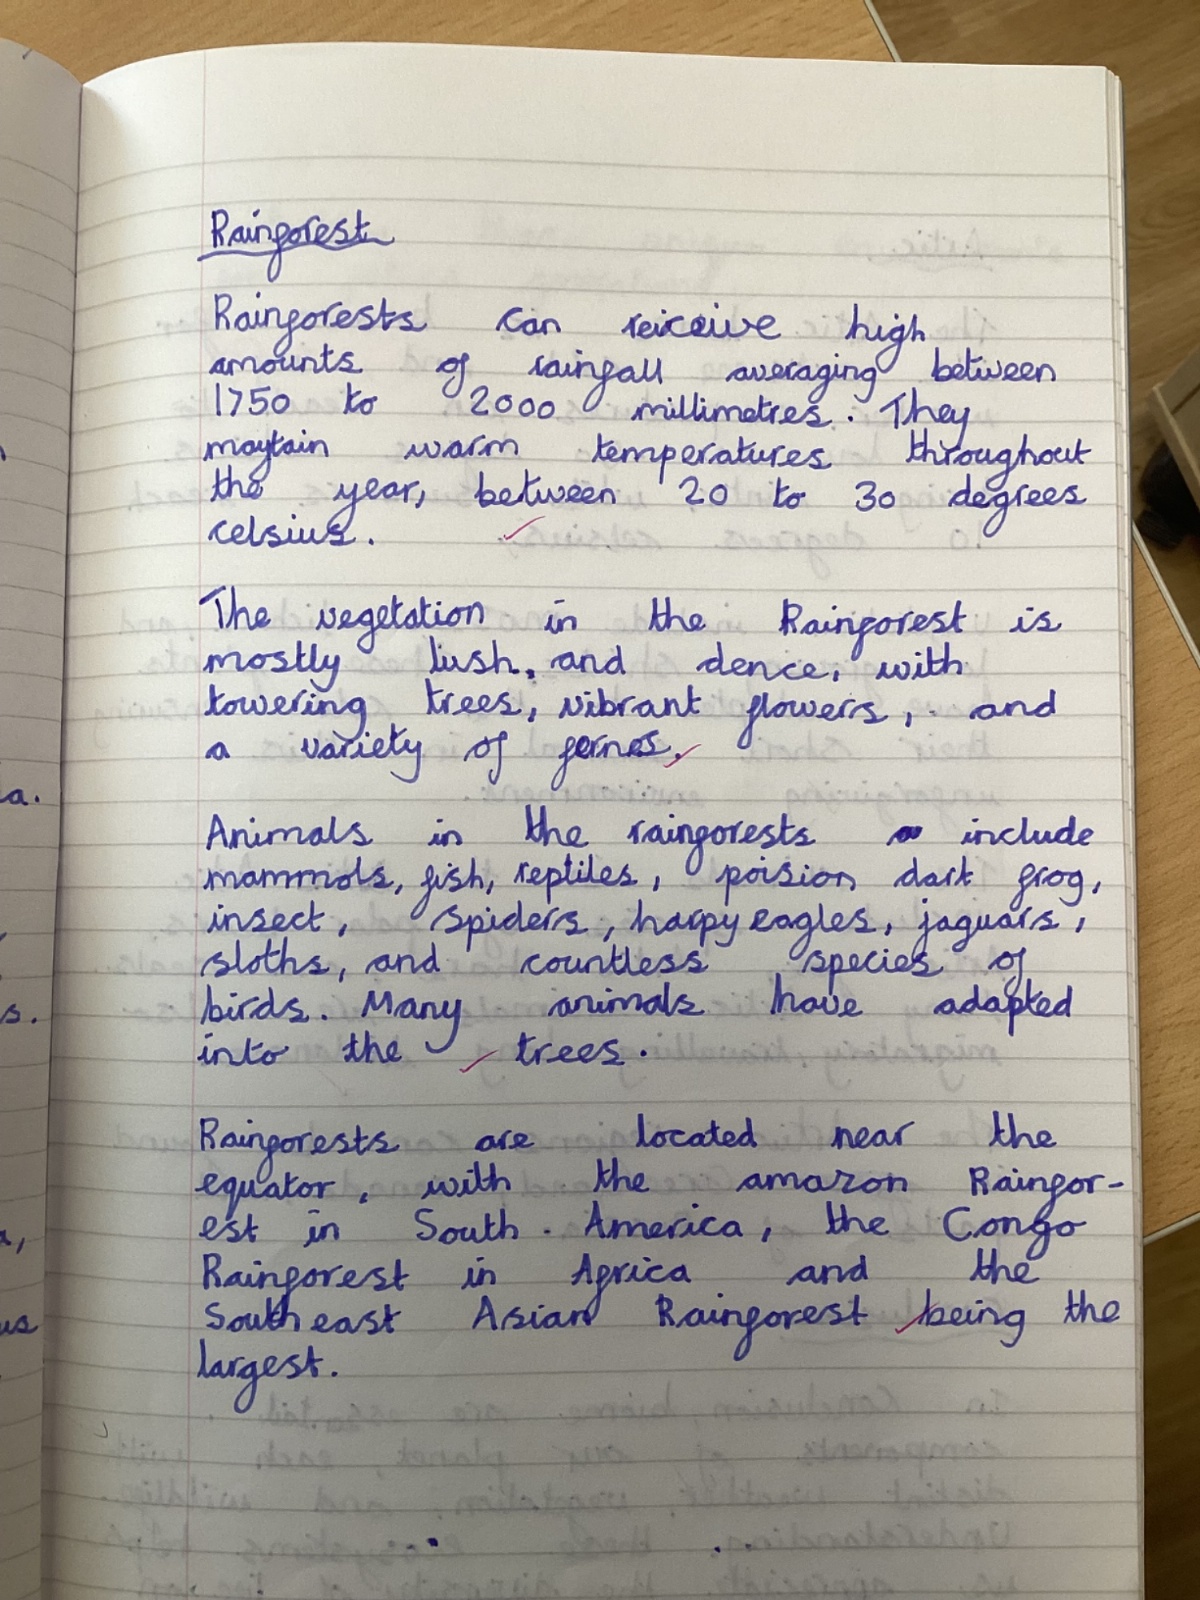 Rainforest
Rainforests can reiceive high
amounts of rainfall averaging between
1750 to 2000 millimetres. They
maytain warm temperatures throughout
the year, between 20 to 30 degrees
celsius.
The vegetation in the Rainforest is
mostly lush, and dence, with
towering trees, vibrant flowers, and
a variety of fernes.
Animals in the rainforests include
mammols, fish, reptiles, poision dart frog,
insect, spiders, harpy eagles, jaguars,
sloths, and countless species of
birds. Many animals have adapted
into the trees.
Rainforests are located near the
equator, with the amazon Rainfor-
est in South. America, the Congo
Rainforest in Africa and the
South east Asian Rainforest being the
largest.